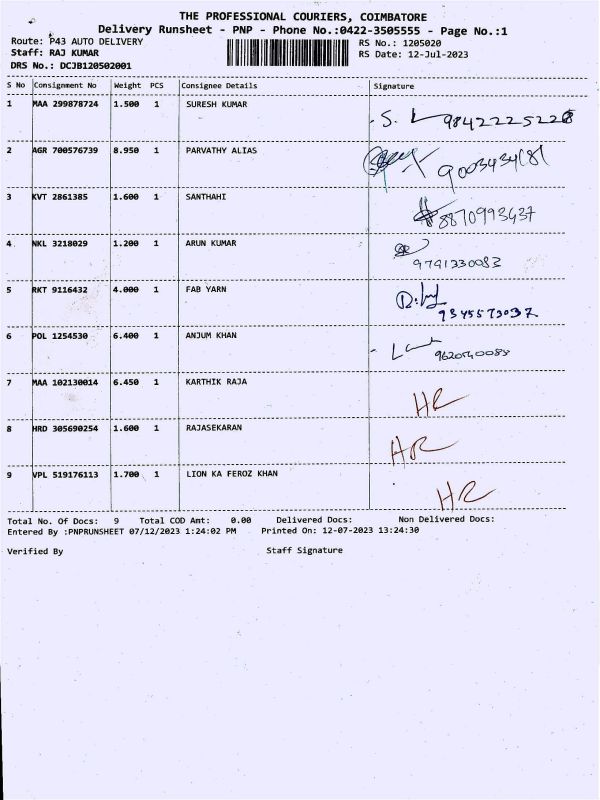 THE PROFESSIONAL COURIERS, COIMBATORE
Delivery Runsheet - PNP - Phone No.:0422-3505555 - Page No.:1
Route: P43 AUTO DELIVERY RS No.: 1205020
Staff: RAJ KUMAR RS Date: 12-Jul-2023
DRS No.: DCJB120502001
S No Consignment No Weight PCS Consignee Details Signature
1 MAA 299878724 1.500 1 SURESH KUMAR S. 98422252
2 AGR 700576739 8.950 1 PARVATHY ALIAS
3 KVT 2861385 1.600 1 SANTHAHI 8870993437
4 NKL 3218029 1.200 1 ARUN KUMAR 9791330083
5 RKT 9116432 4.000 1 FAB YARN
6 POL 1254530 6.400 1 ANJUM KHAN
7 MAA 102130014 6.450 1 KARTHIK RAJA HR
8 HRD 305690254 1.600 1 RAJASEKARAN HR
9 VPL 519176113 1.700 1 LION KA FEROZ KHAN HR
Total No. Of Docs: 9 Total COD Amt: 0.00 Delivered Docs: Non Delivered Docs:
Entered By :PNPRUNSHEET 07/12/2023 1:24:02 PM Printed On: 12-07-2023 13:24:30
Verified By Staff Signature